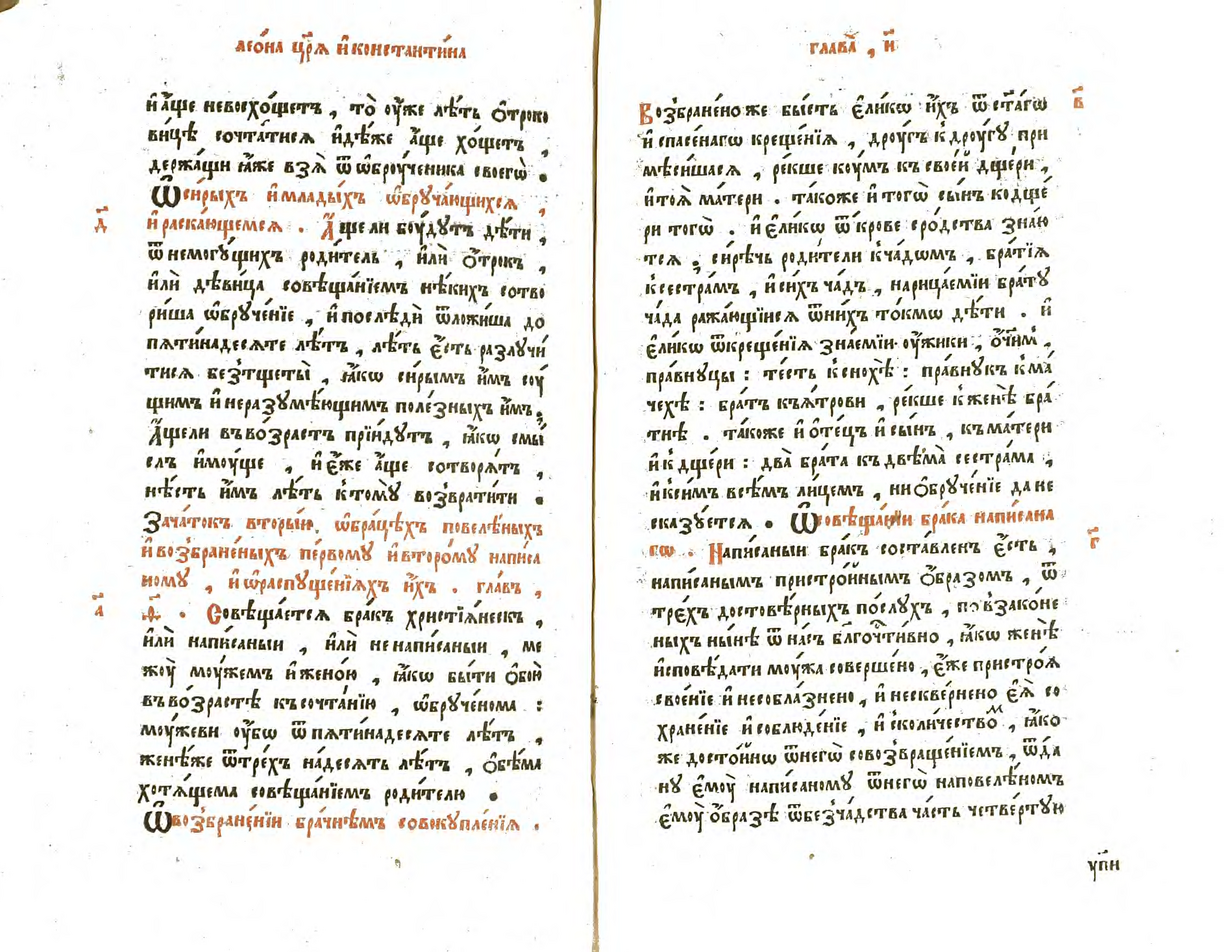 леѡ́на цр҃ѧ и҆ константи́на
и҆ а҆́ще невосхо́щетъ , то̀ оу҆́же лѣ́ть ѻ҆троко
ви́цѣ сочта́тисѧ и҆дѣ́же а҆́ще хо́щетъ ,
держа́щи ꙗ҆́же взѧ̀ ѿ ѡ҆бро́ученика своегѡ̀ .
Ѡ҆ си́рыхъ и҆ млады́хъ ѡ҆бруча́ющихсѧ ,
д҃
и҆ раска́ющемсѧ . А҆́ще ли бо́удутъ дѣ́ти ,
ѿ немогу́щихъ роди́тель , и҆лѝ ѻ҆́трокъ ,
и҆лѝ дѣви́ца совѣща́нїемъ нѣ́кихъ сотво
ри́ша ѡ҆бруче́нїе , и҆ послѣдѝ ѿложи́ша до
пѧтина́десѧте лѣ́тъ , лѣ́ть є҆́сть разлучи́
тисѧ без̾тщеты̀ , ꙗ҆́кѡ си́рымъ и҆̀мъ соу́
щимъ и҆ неразумѣ́ющимъ поле́зныхъ и҆̀мъ .
А҆́щели въво́зрастъ прїи́дутъ , ꙗ҆́кѡ смы́
слъ и҆мо́уще , и҆ є҆́же а҆́ще сотворѧ́тъ ,
нѣ́сть и҆̀мъ лѣ́ть к̾тому̀ возврати́ти .
Зача́токъ вторы́и , ѡ҆ бра́цѣхъ повеле́ныхъ
и҆ возбране́ныхъ пе́рвому и҆ второ́му написа
ному , и҆ ѡ҆ распуще́нїѧхъ и҆́хъ . гла́въ ,
а҃
д҃ . Совѣща́етсѧ бра́къ христїѧ́нескъ ,
и҆лѝ напи́саныи , и҆лѝ ненапи́саныи , ме
жо́у мо́ужемъ и҆ жено́ю , ꙗ҆́кѡ бы́ти ѻ҆бою̀
въво́зрастѣ къ сочта́нїю , ѡ҆бруче́нома :
мо́ужеви оу҆́бѡ ѿ пѧтина́десѧте лѣ́тъ ,
женѣ́же ѿ трехъ на́десѧть лѣ́тъ , ѻ҆бѣ́ма
хотѧ́щема совѣща́нїемъ роди́телю .
Ѡ҆ возбране́нїи бра́чнѣмъ совокупле́нїѧ .
глава̀ , и҃
в҃
Возбране́ноже бы́сть є҆ли́кѡ и҆́хъ ѿ ст҃а́гѡ
и҆ спасе́нагѡ креще́нїѧ , дро́угъ к̾ дро́угу при
мѣси́шасѧ , ре́кше ко́умъ къ свое́й дще́ри ,
и҆ тоѧ̀ ма́тери . та́коже и҆ тогѡ̀ сы́нъ ко дще́
ри тогѡ̀ . и҆ є҆ли́кѡ ѿ кро́ве сро́дства зна́ю
тсѧ , си́рѣчь роди́тели к̾ ча́дѡмъ , бра́тїѧ
к̾ сестра́мъ , и҆ си́хъ ча́дъ , нарица́емїи бра́ту
ча́да ража́ющїисѧ ѿ ни́хъ то́кмѡ дѣ́ти . и҆
є҆ли́кѡ ѿ креще́нїѧ зна́емїи оу҆́жики , ѻ҆́чимъ ,
пра́внуцы : те́сть к̾ сносѣ̀ : пра́внукъ к̾ ма́
чехѣ : бра́тъ къ ꙗ҆́трови , ре́кше к̾ женѣ̀ бра́
тнѣ . та́коже и҆ ѻ҆те́цъ и҆ сы́нъ , къ ма́тери
и҆ к̾ дще́ри : два̀ бра́та къ двѣ́ма сестра́ма ,
и҆ к̾ си́мъ всѣ́мъ ли́цемъ , ни ѻ҆бруче́нїе да не
ска́зуетсѧ . Ѡ҆ совѣща́нїи бра́ка напи́сана
г҃
гѡ . Напи́саныи бра́къ соста́вленъ є҆́сть ,
напи́санымъ пристро́йнымъ ѻ҆́бразомъ , ѿ
тре́хъ достовѣ́рныхъ по́слухъ , по в̾зако́не
ныхъ ны́нѣ ѿ на́съ бл҃гоч҇ти́вно , ꙗ҆́кѡ женѣ̀
и҆сповѣ́дати мо́ужа соверше́но , є҆́же пристро́ѧ
своє́нїе и҆ несобла́знено , и҆ нескве́рнено є҆ѧ̀ со
хране́нїе и҆ соблюде́нїе , и҆ коли́чествоⷨ , ꙗ҆́ко
же досто́йнѡ ѿ негѡ̀ совозвраще́нїемъ , ѿда́
ну є҆мо́у напи́саному ѿ негѡ̀ на повеле́номъ
є҆мо́у ѻ҆́бразѣ ѿ безча́дства ча́сть четве́ртую
уп҃и